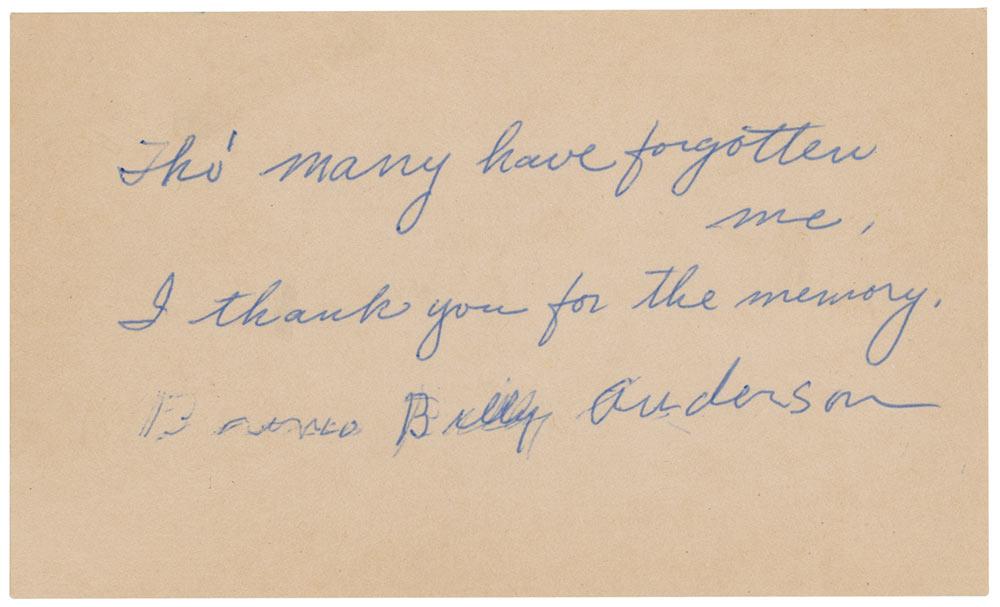 Tho' many have forgotten
me,
I thank you for the memory.
Billy Anderson